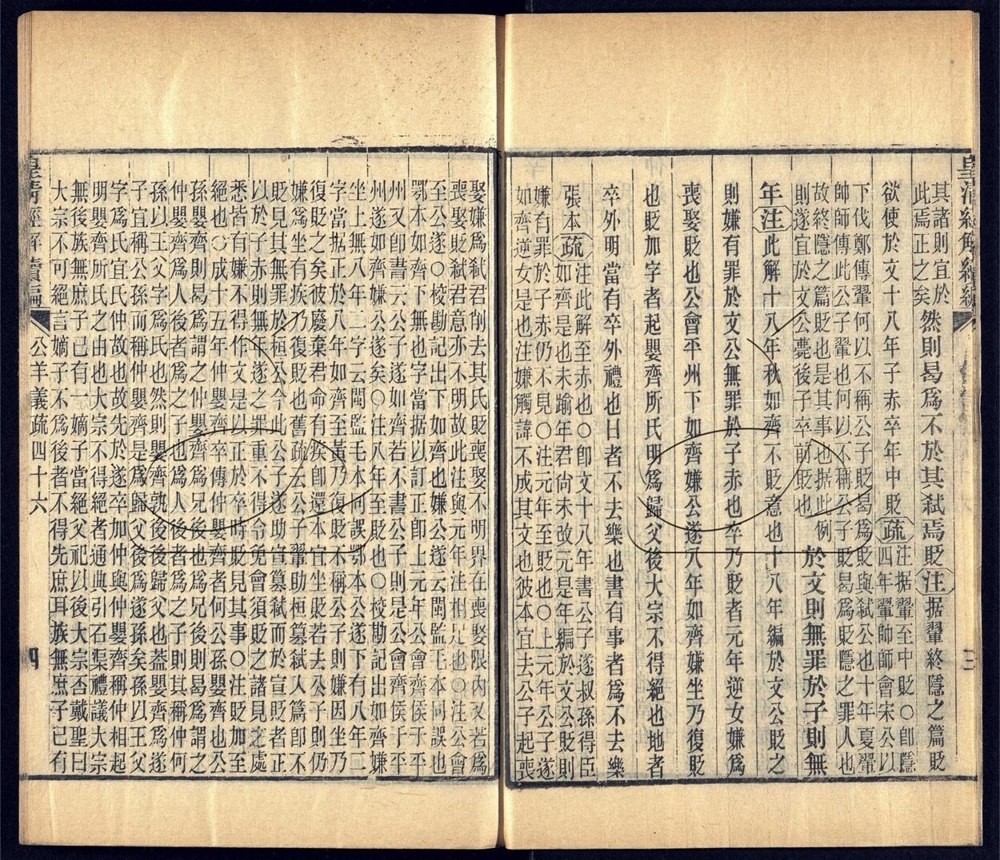 皇清經解續編
三
其諸則宜於
此焉正之矣
然則曷爲不於其弑焉貶注据翬終隱之篇貶
欲使於文十八年子赤卒年中貶疏
注据翬至中貶○卽隱
四年翬帥師會宋公以
下伐鄭傳翬何以不稱公子貶曷爲貶與弑公也十年夏翬
帥師傳此公子翬也何以不稱公子貶曷爲貶隱之罪人也
故終隱之篇貶也是其事也据此例
則遂宜於文公薨後子卒前貶也
於文則無罪於子則無
年注此解十八年秋如齊不貶意也十八年編於文公貶之
則嫌有罪於文公無罪於子赤也卒乃貶者元年逆女嫌爲
喪娶貶也公會平州下如齊嫌公遂八年如齊嫌坐乃復貶
也貶加字者起嬰齊所氏明爲歸父後大宗不得絕也地者
卒外明當有卒外禮也日者不去樂也書有事者爲不去樂
張本疏
注此解至赤也○卽文十八年書公子遂叔孫得臣
如齊是也未踰年君尙未改元是年編於文公貶則
嫌有罪於子赤仍不見○注元年至貶也○上元年公子遂
如齊逆女是也注嫌觸諱不成其文也彼本宜去公子起喪
娶嫌爲弑君削去其氏貶喪娶不明界在喪娶限內又若爲
喪娶貶弑君意亦不明故此注與元年注相足也○注公會
至公遂○校勘記出下如齊也嫌公遂云閩監毛本同誤也
鄂本如齊下無也字當据以訂正卽上元年公會齊侯于平
州又卽書云公子遂如齊若不書公子則是公會齊侯于平
州遂如齊嫌公遂矣○注八年至貶也○校勘記出如齊嫌
坐上無八年二字云閩監毛本何誤鄂本公遂下有八年二
字當据正於八年如齊至黃乃復貶不稱公子則嫌因坐乃
復貶之矣彼廢棄君命有疾卽還本宜坐貶若去公子則仍
嫌爲坐有疾乃復貶也舊疏云公子翬助桓篡弑人篇卽不
貶見其無罪於桓公今此公子遂助宣篡弑而於宣貶者正
以於子赤則無年遂之罪重不得令免會須貶之諸見之處
悉皆有嫌不得作文是以正於卒時貶見其事○注貶加至
絕也○成十五年仲嬰齊卒傳仲嬰齊者何公孫嬰齊也公
孫嬰齊則曷爲謂之仲嬰齊爲兄後也爲兄後則曷爲謂之
仲嬰齊爲人後者爲之子也爲人後者爲之子則其稱仲何
孫以王父字爲氏也然則嬰齊孰後後歸父也蓋嬰齊爲遂
子宜稱公孫而稱仲嬰齊是爲歸父後爲遂孫矣孫以王父
字爲氏宜氏仲故也故先於遂卒加仲與仲嬰齊稱仲相起
明嬰齊所氏之由也大宗不得絕者通典引石渠禮議大宗
無後族無庶子己有一嫡子當絕父祀以後大宗否戴聖曰
大宗不可絕言嫡子不爲後者不得先庶耳族無庶子己有
皇清經解續編
公羊義疏四十六
四